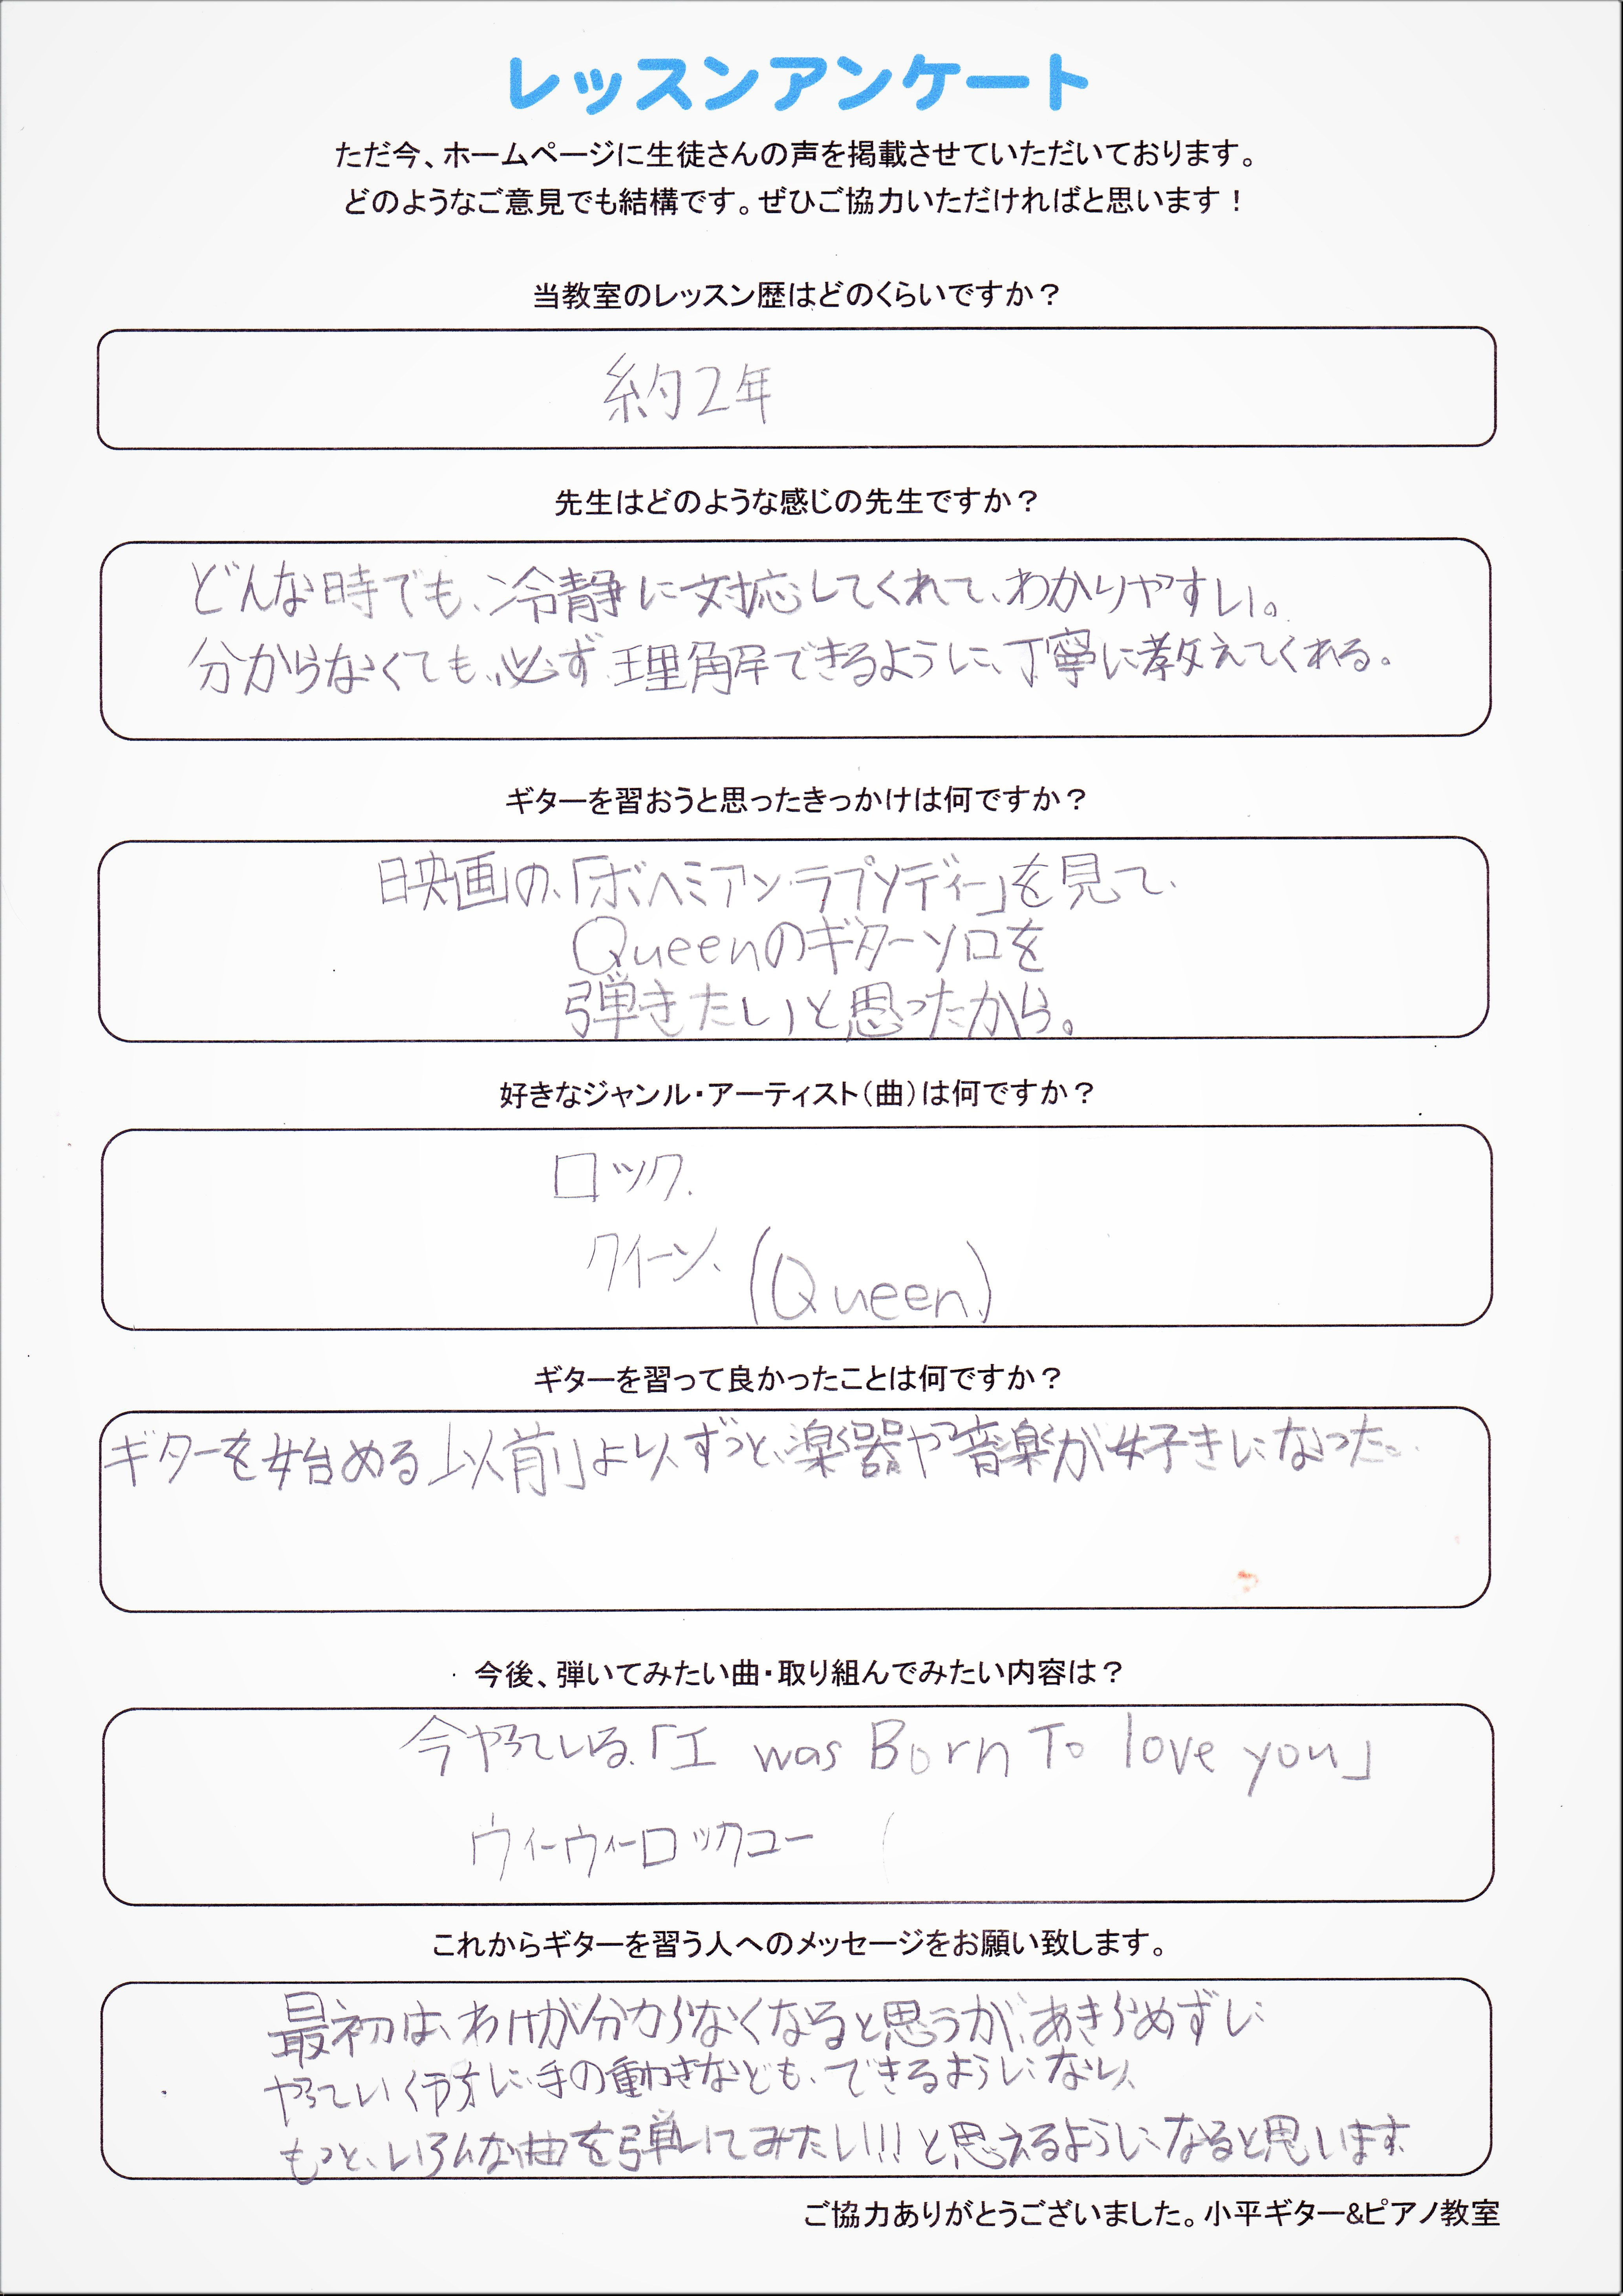 レッスンアンケート
ただ今、ホームページに生徒さんの声を掲載させていただいております。
どのようなご意見でも結構です。ぜひご協力いただければと思います！
当教室のレッスン歴はどのくらいですか？
約2年
先生はどのような感じの先生ですか？
どんな時でも、冷静に対応してくれて、わかりやすい。
分からなくても、必ず理解できるように、丁寧に教えてくれる。
ギターを習おうと思ったきっかけは何ですか？
映画の、「ボヘミアン・ラプソディー」を見て、
Queenのギターソロを
弾きたいと思ったから。
好きなジャンル・アーティスト（曲）は何ですか？
ロック.
クイーン、(Queen)
ギターを習って良かったことは何ですか？
ギターを始める以前よりずっと、楽器や音楽が好きになった。
今後、弾いてみたい曲・取り組んでみたい内容は？
今やっている「I was Born To love you」
ウィーウィーロックユー
これからギターを習う人へのメッセージをお願い致します。
最初は、わけが分からなくなると思うが、あきらめずに
やっていく内に、手の動きなども、できるようになり、
もっと、いろんな曲を弾いてみたい!!!と思えるようになると思います
ご協力ありがとうございました。小平ギター&ピアノ教室